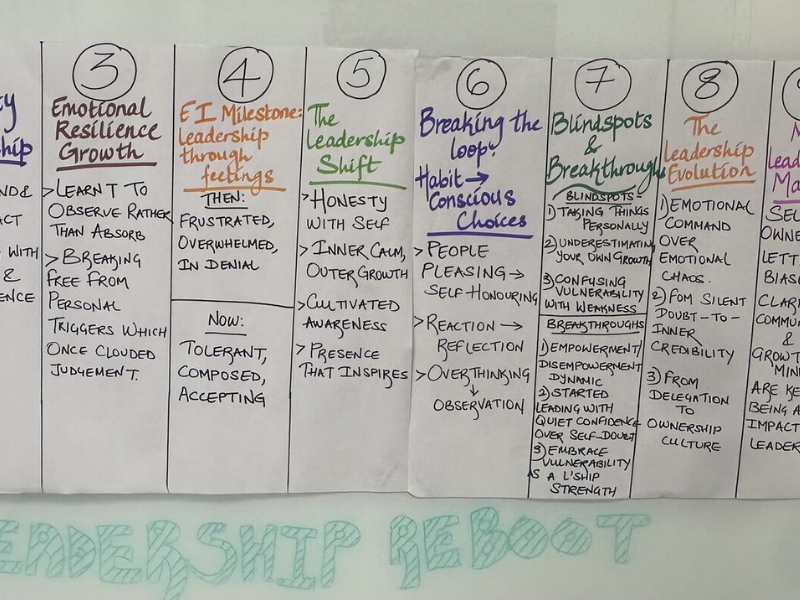 3
Emotional
Resilience
Growth
> LEARNT TO
OBSERVE RATHER
THAN ABSORB
> BREAKING
FREE FROM
PERSONAL
TRIGGERS WHICH
ONCE CLOUDED
JUDGEMENT.
4
EI Milestone:
Leadership
through
feelings
THEN:
FRUSTRATED,
OVERWHELMED,
IN DENIAL
NOW:
TOLERANT,
COMPOSED,
ACCEPTING
5
The
Leadership
Shift
> HONESTY
WITH SELF
> INNER CALM,
OUTER GROWTH
> CULTIVATED
AWARENESS
> PRESENCE
THAT INSPIRES
6
Breaking the
loop:
Habit →
Conscious
Choices
> PEOPLE
PLEASING →
SELF HONOURING
> REACTION →
REFLECTION
> OVERTHINKING
↓
OBSERVATION
7
Blindspots
&
Breakthroughs
BLINDSPOTS -
1) TAKING THINGS
PERSONALLY
2) UNDERESTIMATIN
YOUR OWN GROWTH
3) CONFUSING
VULNERABILITY
WITH WEAKNESS
BREAKTHROUGHS
1) EMPOWERMENT/
DISEMPOWERMENT
DYNAMIC
2) STARTED
LEADING WITH
QUIET CONFIDENCE
OVER SELF-DOUBT
3) EMBRACE
VULNERABILITY
AS A L'SHIP
STRENGTH
8
The
Leadership
Evolution
1) EMOTIONAL
COMMAND
OVER
EMOTIONAL
CHAOS.
2) FOM SILENT
DOUBT-TO-
INNER
CREDIBILITY
3) FROM
DELEGATION
TO
OWNERSHIP
CULTURE
&
ARE KE
BEING A
IMPACT
LEADER
EADERSHIP REBOOT